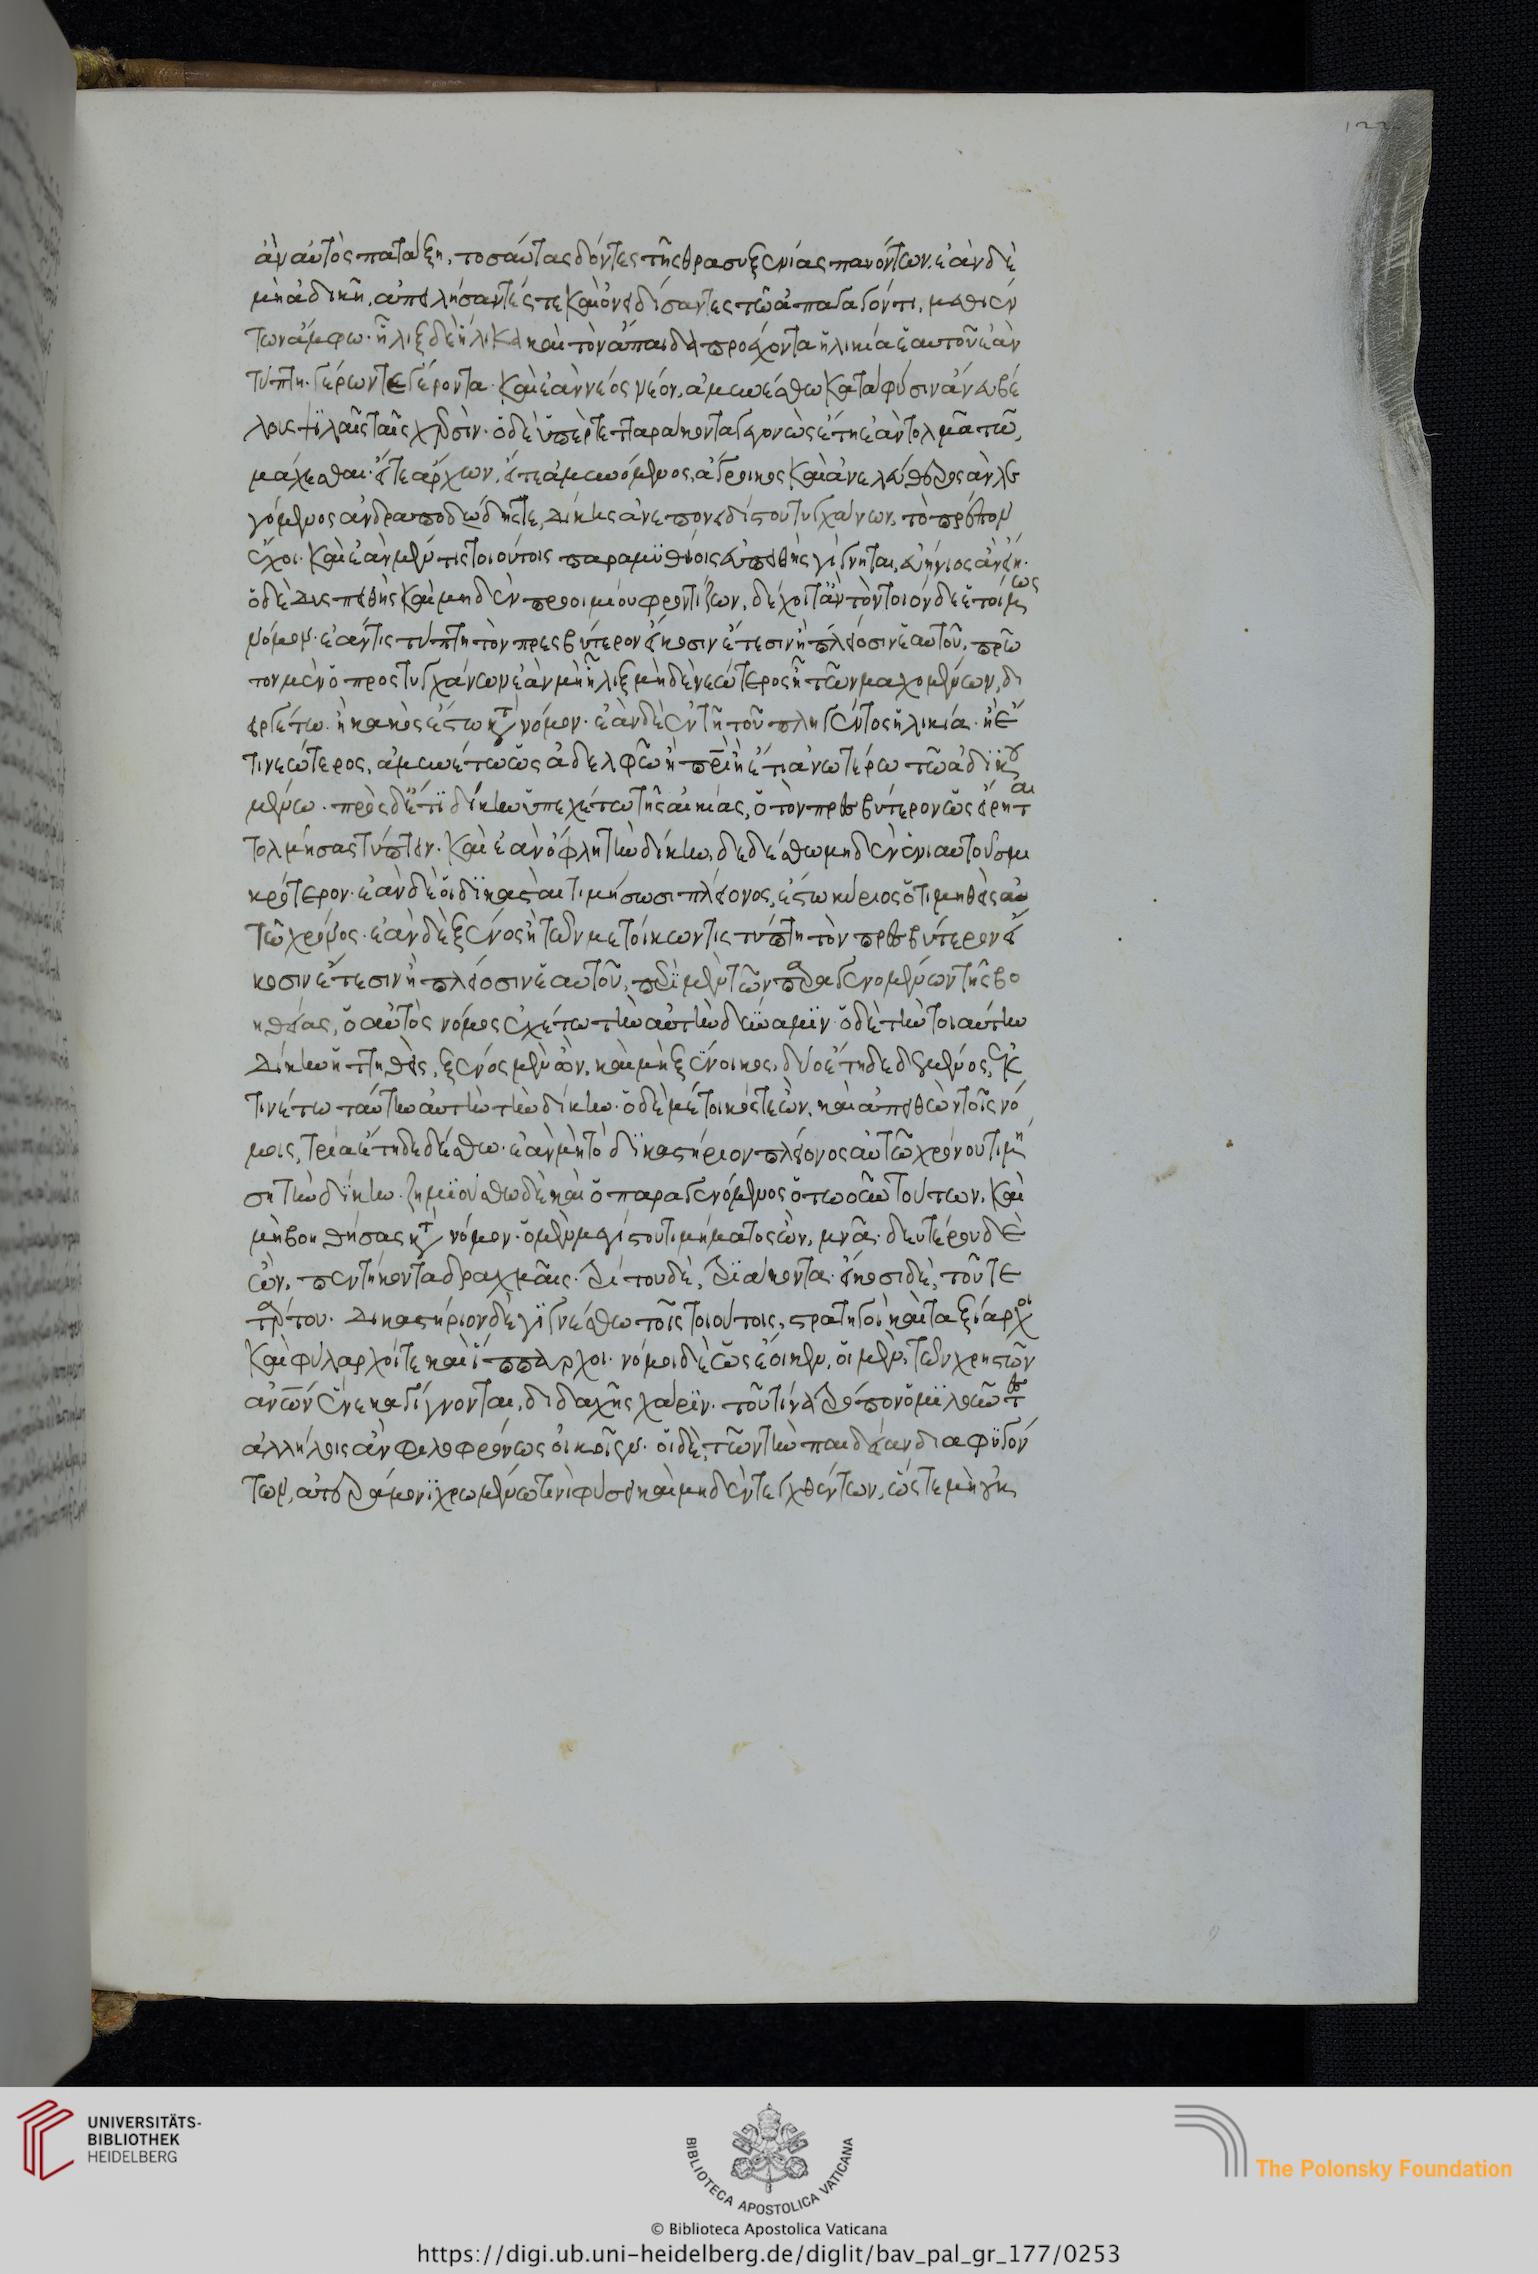 122
ἂν αὐτὸς πατάξῃ, τοσαύτας δόντες τῆς θρασυξενίας παυόντων. ἐὰν δὲ
μὴ ἀδικῆ, ἀπειλήσαντές τε καὶ ὀνειδίσαντες τῶ ἀπαγαγόντι, μεθιέν
των ἄμφω· ἧλιξ δὲ ἥλικα καὶ τὸν ἄπαιδα προέχοντα ἡλικία ἑαυτοῦ ἐὰν
τύπτη. γέρων τε γέροντα. καὶ ἐὰν νέος νέον, ἀμυνέσθω κατὰ φύσιν ἄνευ βέ
λους ψιλαῖς ταῖς χερσὶν. ὁ δὲ ὑπὲρ τετταράκοντα γεγονὼς ἔτη ἐὰν τολμᾶ τῳ
μάχεσθαι. εἴτε ἄρχων. εἴτε ἀμυνόμενος, ἄγροικος καὶ ἀνελεύθερος ἂν λε
γόμενος ἀνδραποδώδης τε, δίκης ἂν ἐπονειδίστου τυγχάνων. τὸ πρέπον
ἔχοι. καὶ ἐὰν μέν τις τοιούτοις παραμυθίοις εὐπειθὴς γίγνηται, εὐήνιος ἂν εἴη.
ὁ δὲ δυσπειθὴς καὶ μηδὲν προοιμίου φροντίζων, δέχοιτ' ἂν τὸν τοιόνδε ἑτοίμως
νόμον. ἐάν τις τύπτη τὸν πρεσβύτερον εἴκοσιν ἔτεσιν ἢ πλείοσιν ἑαυτοῦ, πρῶ
τον μὲν ὁ προστυγχάνων ἐὰν μὴ ἧλιξ μὴ δὲ νεώτερος ἦ τῶν μαχομένων, δι
ειργέτω. ἢ κακὸς ἔστω κατὰ νόμον. ἐὰν δὲ ἐν τῆ τοῦ πληγέντος ἡλικία. ἢ ἔ
τι νεώτερος, ἀμυνέτω ὡς ἀδελφῶ ἢ πατρὶ ἢ ἔτι ἀνωτέρω τῶ ἀδικου
μένω. πρὸς δ' ἔτι δίκην ὑπεχέτω τῆς αἰκίας, ὁ τὸν πρεσβύτερον ὡς εἴρηται
τολμήσας τύπτειν. καὶ ἐὰν ὄφλη τὴν δίκην, δεδέσθω μηδὲν ἐνιαυτοῦ σμι
κρότερον. ἐὰν δὲ οἱ δικασταὶ τιμήσωσι πλείονος, ἔστω κύριος ὁ τιμηθεὶς αὐ
τῶ χρόνος. ἐὰν δὲ ξένος ἢ τῶν μετοίκων τις τύπτη τὸν πρεσβύτερον εἴ
κοσιν ἔτεσιν ἢ πλείοσιν ἑαυτοῦ, περὶ μὲν τῶν παραγενομένων τῆς βο
ηθείας, ὁ αὐτὸς νόμος ἐχέτω τὴν αὐτὴν δύναμιν. ὁ δὲ τὴν τοιαύτην
δίκην ἡττηθεὶς, ξένος μὲν ὢν. καὶ μὴ ξύνοικος, δύο ἔτη δεδεμένος, ἐκ
τινέτω ταύτην αὐτὴν τὴν δίκην. ὁ δὲ μέτοικός τε ὢν, καὶ ἀπειθῶν τοῖς νό
μοις, τρία ἔτη δεδέσθω. ἐὰν μὴ τὸ δικαστήριον πλείονος αὐτῶ χρόνου τιμή
ση τὴν δίκην. ζημιούσθω δὲ καὶ ὁ παραγενόμενος ὁτωοῦν τούτων, καὶ
μὴ βοηθήσας κατὰ νόμον. ὁ μὲν μεγίστου τιμήματος ὢν, μνᾶ. δευτέρου δὲ
ὢν, πεντήκοντα δραχμαῖς. τρίτου δὲ, τριάκοντα. εἴκοσι δὲ, τοῦ τε
τάρτου. δικαστήριον δὲ γιγνέσθω τοῖς τοιούτοις, στρατηγοὶ καὶ ταξίαρχοι
καὶ φύλαρχοί τε καὶ ἵππαρχοι. νόμοι δὲ ὡς ἔοικεν, οἱ μὲν, τῶν χρηστῶν
ἀνθρώπων ἕνεκα γίγνονται, διδαχῆς χάριν. τοῦ τίνα τρόπον ὁμιλοῦντες
ἀλλήλοις ἂν φιλοφρόνως οἰκοῖεν. οἱ δὲ, τῶν τὴν παιδείαν διαφυγόν
των, ἀτεράμονι χρωμένων τινὶ φύσει καὶ μηδὲν τεγχθέντων, ὥστε μὴ ἐπὶ
UNIVERSITÄTS-
BIBLIOTHEK
HEIDELBERG
BIBLIOTECA APOSTOLICA VATICANA
The Polonsky Foundation
© Biblioteca Apostolica Vaticana
https://digi.ub.uni-heidelberg.de/diglit/bav_pal_gr_177/0253